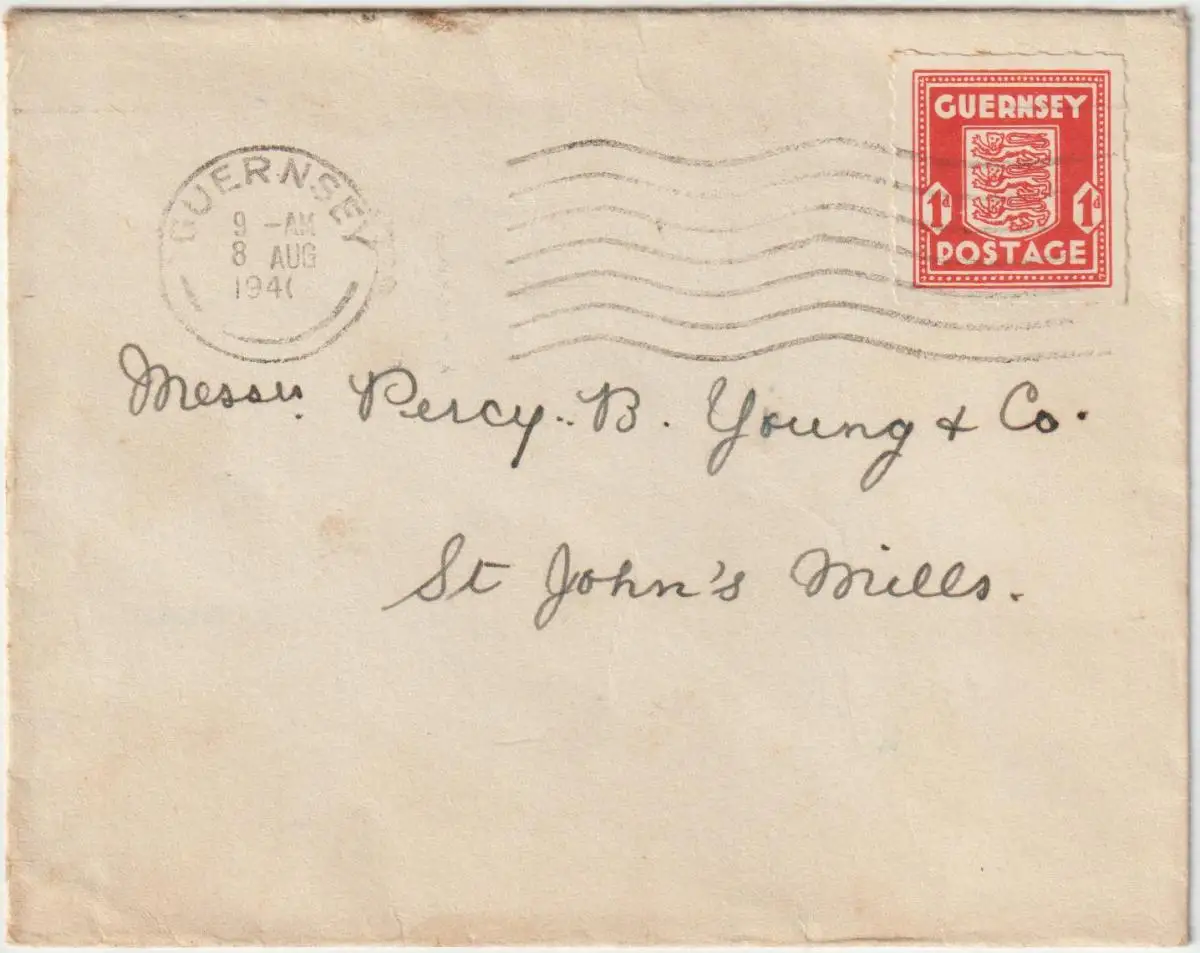 GUERNSEY
9 -AM
8 AUG
GUERNSEY
1d 1d
POSTAGE
Messrs. Percy. B. Young & Co.
St John's Mills.